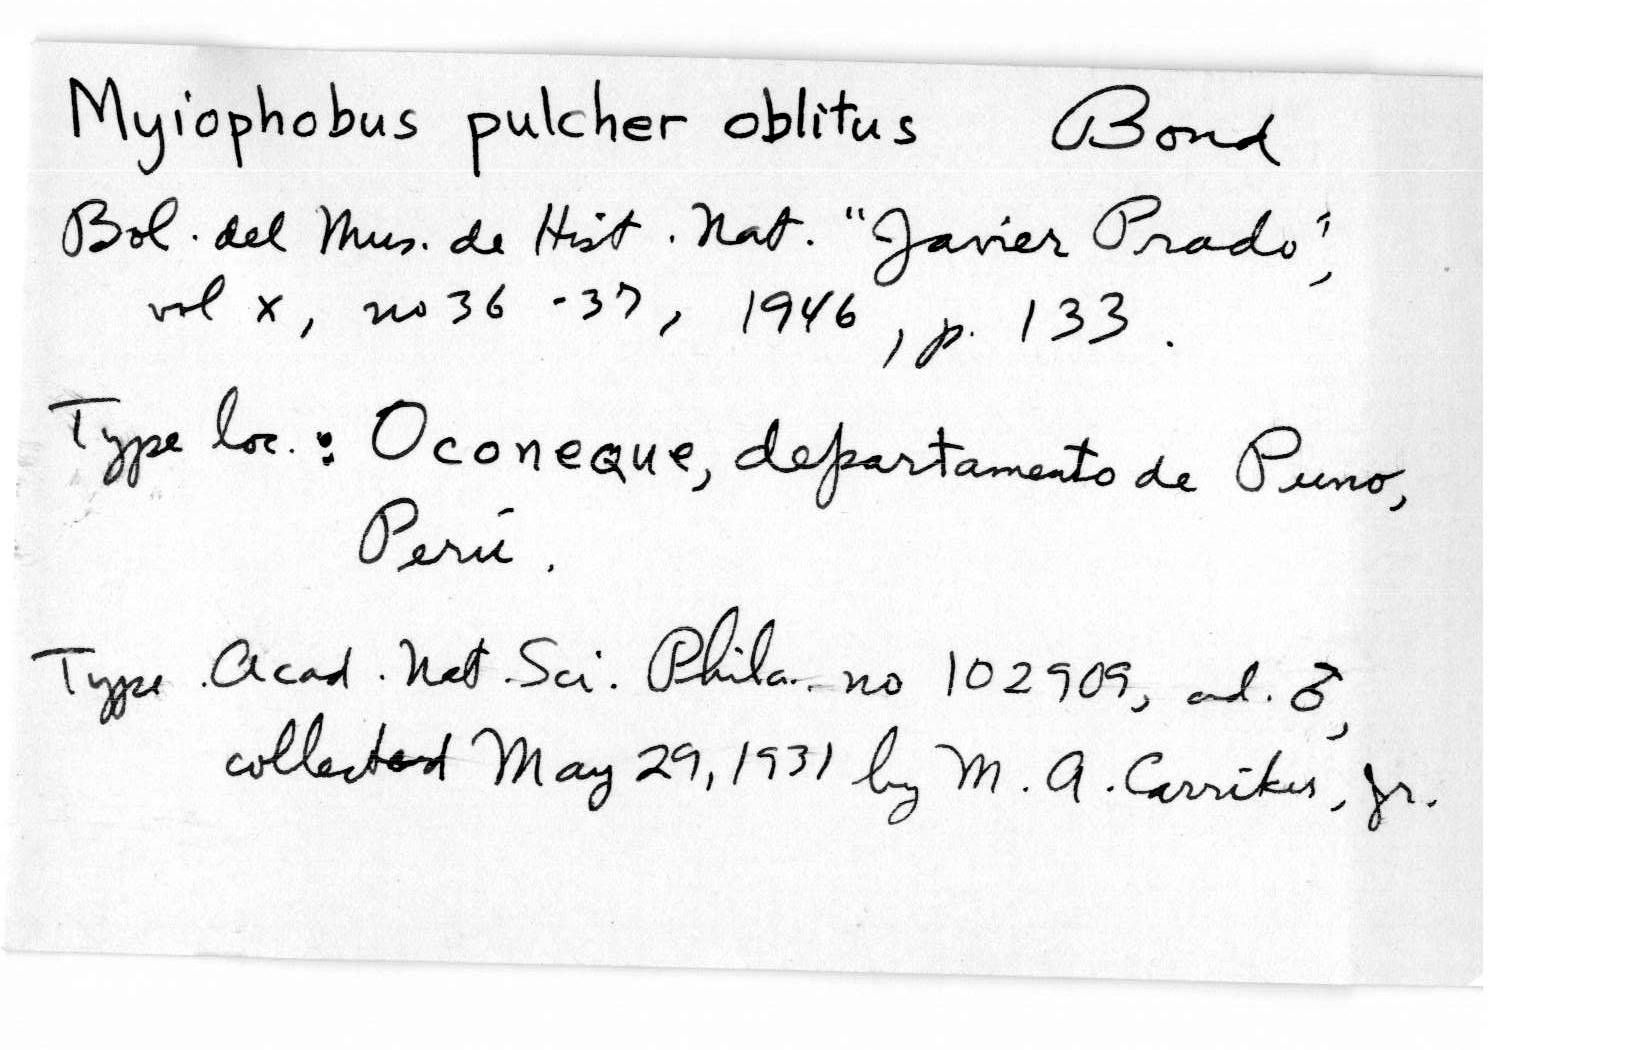 Myiophobus pulcher oblitus Bond
Bol. del Mus. de Hist. Nat. "Javier Prado",
vol x, no 36-37, 1946, p. 133.
Type loc.: Oconeque, departamento de Puno,
Perú.
Type. Acad. Nat. Sci. Phila. no 102909, ad. ♂,
collected May 29, 1931 by M. A. Carriker, Jr.